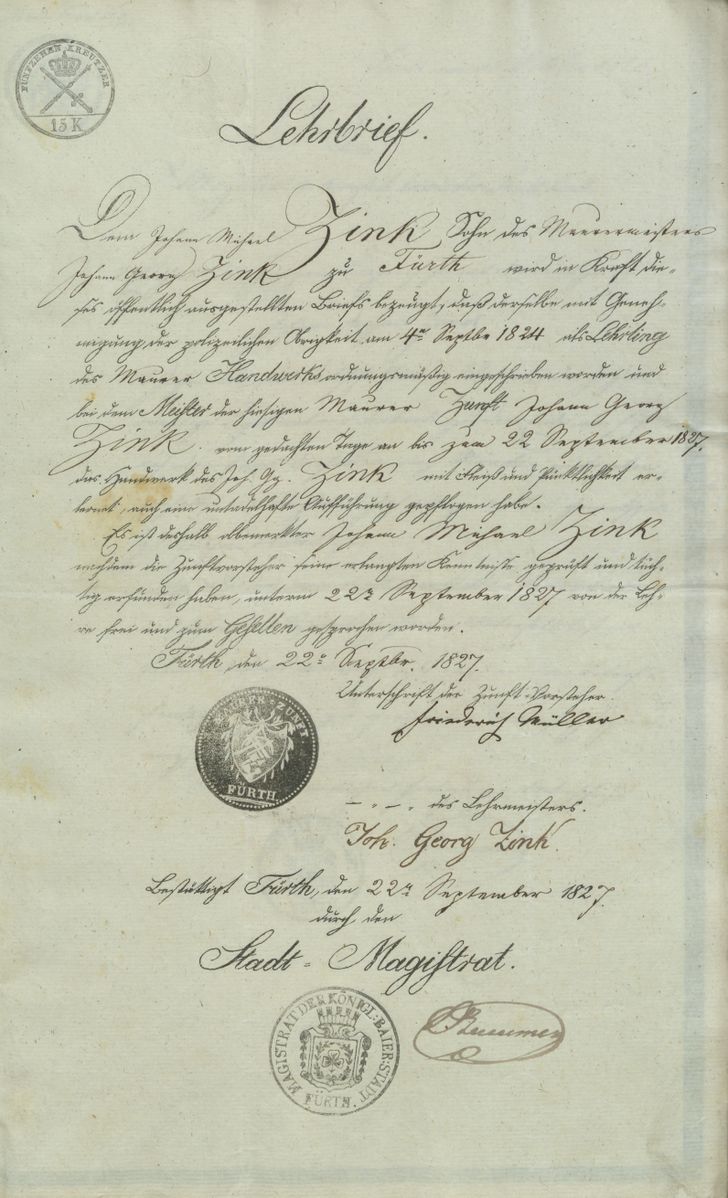 FÜNFZEHEN KREUTZER
15 K
Lehrbrief.
Dem Johann Michael Zink Sohn des Maurermeisters
Johann Georg Zink zu Fürth wird in Kraft die-
ses öffentlich ausgestellten Briefs bezeugt, daß derselbe mit Geneh-
migung der polizeilichen Obrigkeit am 4ten Septbr 1824 als Lehrling
des Maurer Handwerks ordnungsmäßig eingeschrieben worden und
bei dem Meister der hiesigen Maurer Zunft Johann Georg
Zink. vom gedachten Tage an bis zum 22 September 1827.
das Handwerk des Joh. Gg. Zink mit Fleiß und Pünktlichkeit er-
lernet, auch eine untadelhafte Aufführung gepflogen habe.
Es ist deshalb obbemerkter Johann Michael Zink
nachdem die Zunftvorsteher seine erlangten Kenntnisse geprüft und tüch-
tig erfunden haben, unterm 22n September 1827 von der Leh-
re frei und zum Gesellen gesprochen worden.
Fürth, den 22n Septbr. 1827.
Unterschrift der Zunft-Vorsteher.
Friederich Müller
ZUNFT
FÜRTH
– „ – „ des Lehrmeisters.
Joh. Georg Zink.
Bestättigt Fürth, den 22n September 1827.
durch den
Stadt-Magistrat.
MAGISTRAT DER KÖNIGL: BAIER: STADT
FÜRTH.